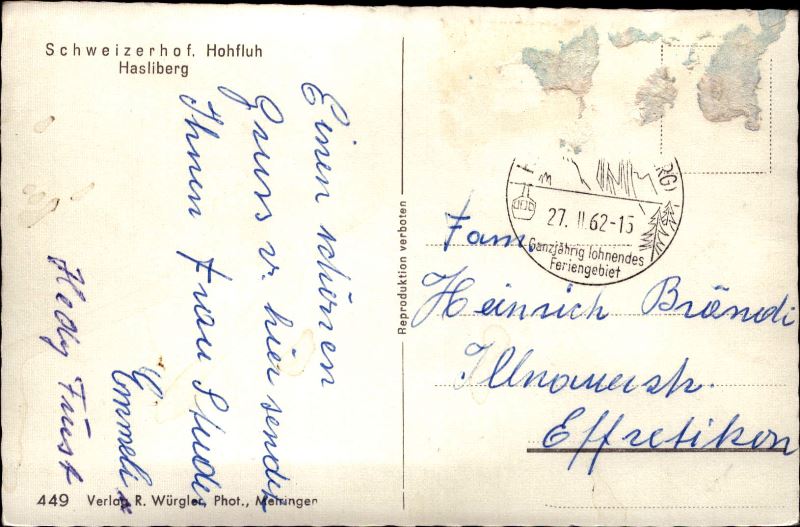 Schweizerhof, Hohfluh
Hasliberg
Einen schönen
Gruss v. hier sendet
Ihnen Frau Studer
Emmeli
Hedy Furst
449 Verlag R. Würgler, Phot., Meiringen
Reproduktion verboten
RG)
27. II. 62-15
Ganzjährig lohnendes
Feriengebiet
Fam.
Heinrich Brändi
Illnauerstr.
Effretikon